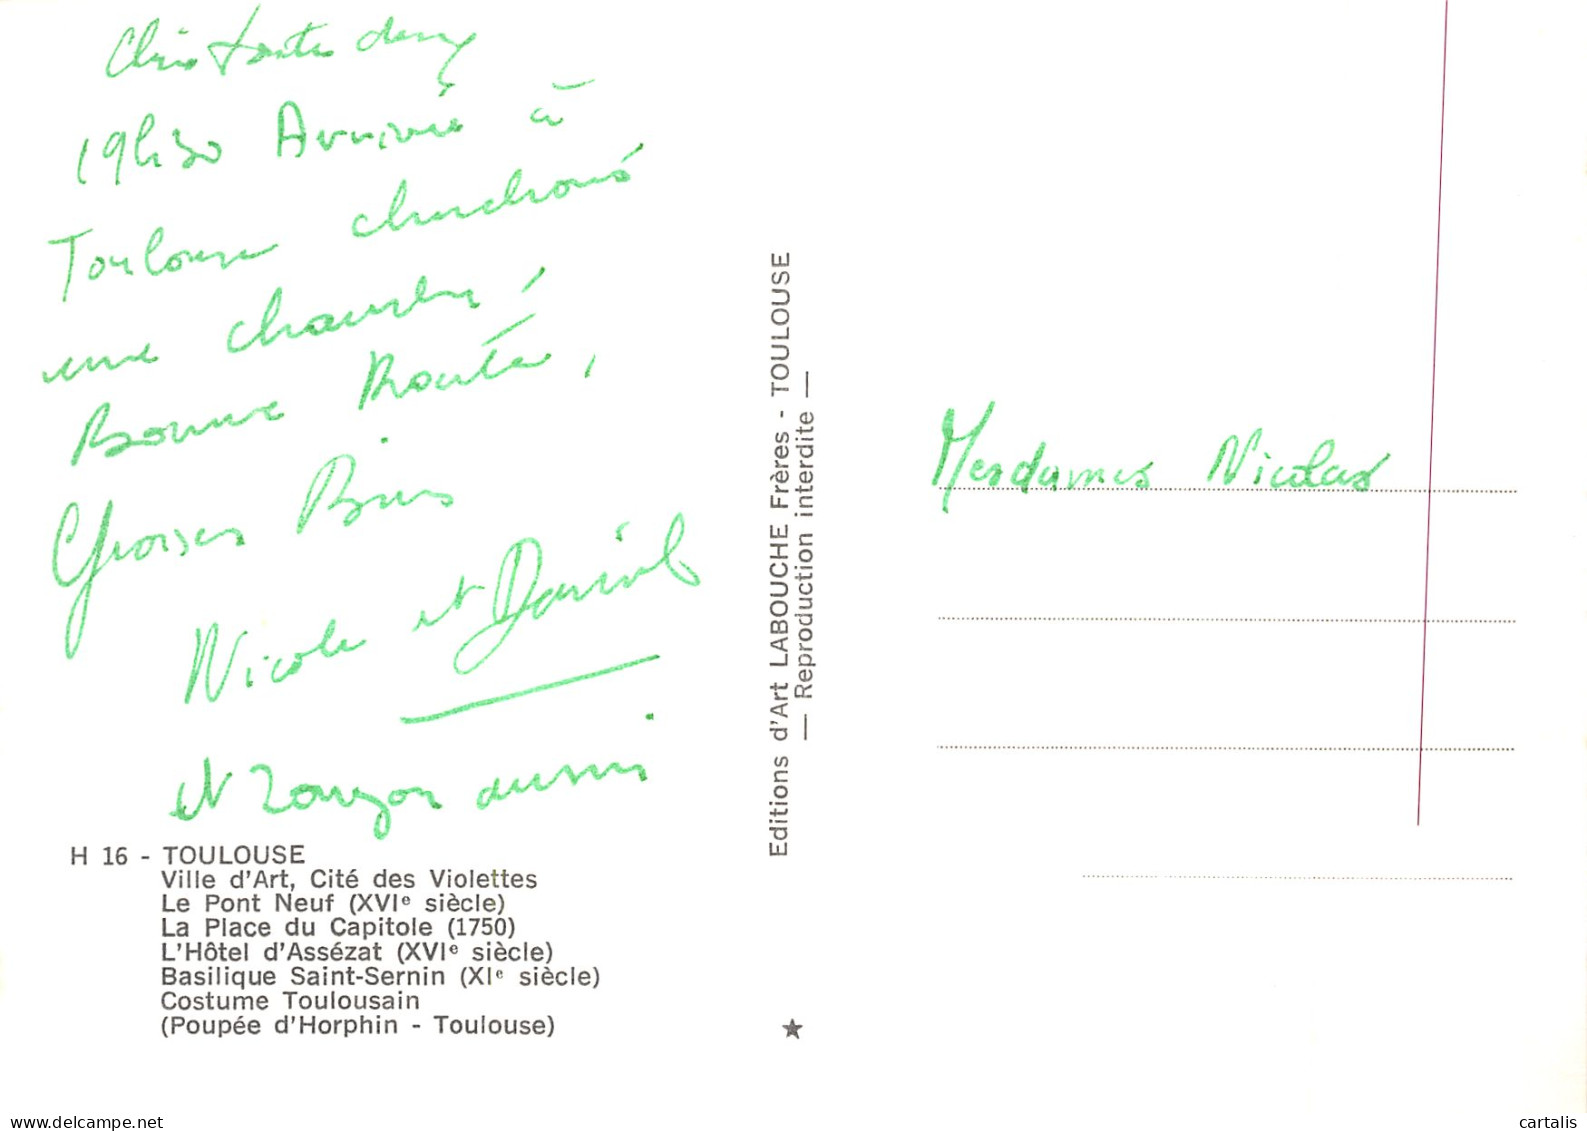 Chères toutes deux
19h30 Arrivée à
Toulouse cherchons
une chambre,
Bonne Route,
Grosses Bises
Nicole et Daniel
et aussi
H 16 - TOULOUSE
Ville d'Art, Cité des Violettes
Le Pont Neuf (XVIe siècle)
La Place du Capitole (1750)
L'Hôtel d'Assézat (XVIe siècle)
Basilique Saint-Sernin (XIe siècle)
Costume Toulousain
(Poupée d'Horphin - Toulouse)
Editions d'Art LABOUCHE Frères - TOULOUSE
— Reproduction interdite —
Mesdames Nicolas
www.delcampe.net
cartalis